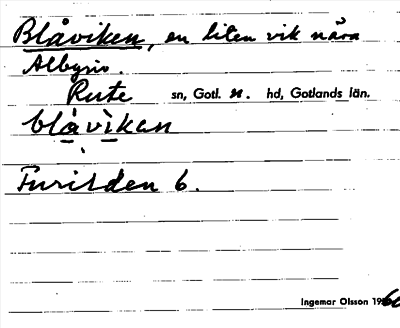 Blåviken, en liten vik nära
Rute sn, Gotl. n. hd, Gotlands län.
blåvìkan
6.
Ingemar Olsson 1960